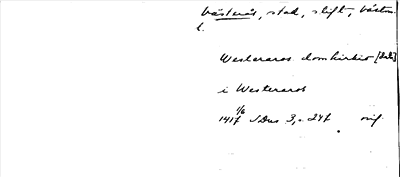 Västerås, stad, stift, Västm.
l.
Westeraros domkirkio
i Westeraros
1/6
1417 SDns 3, s 247 orig.